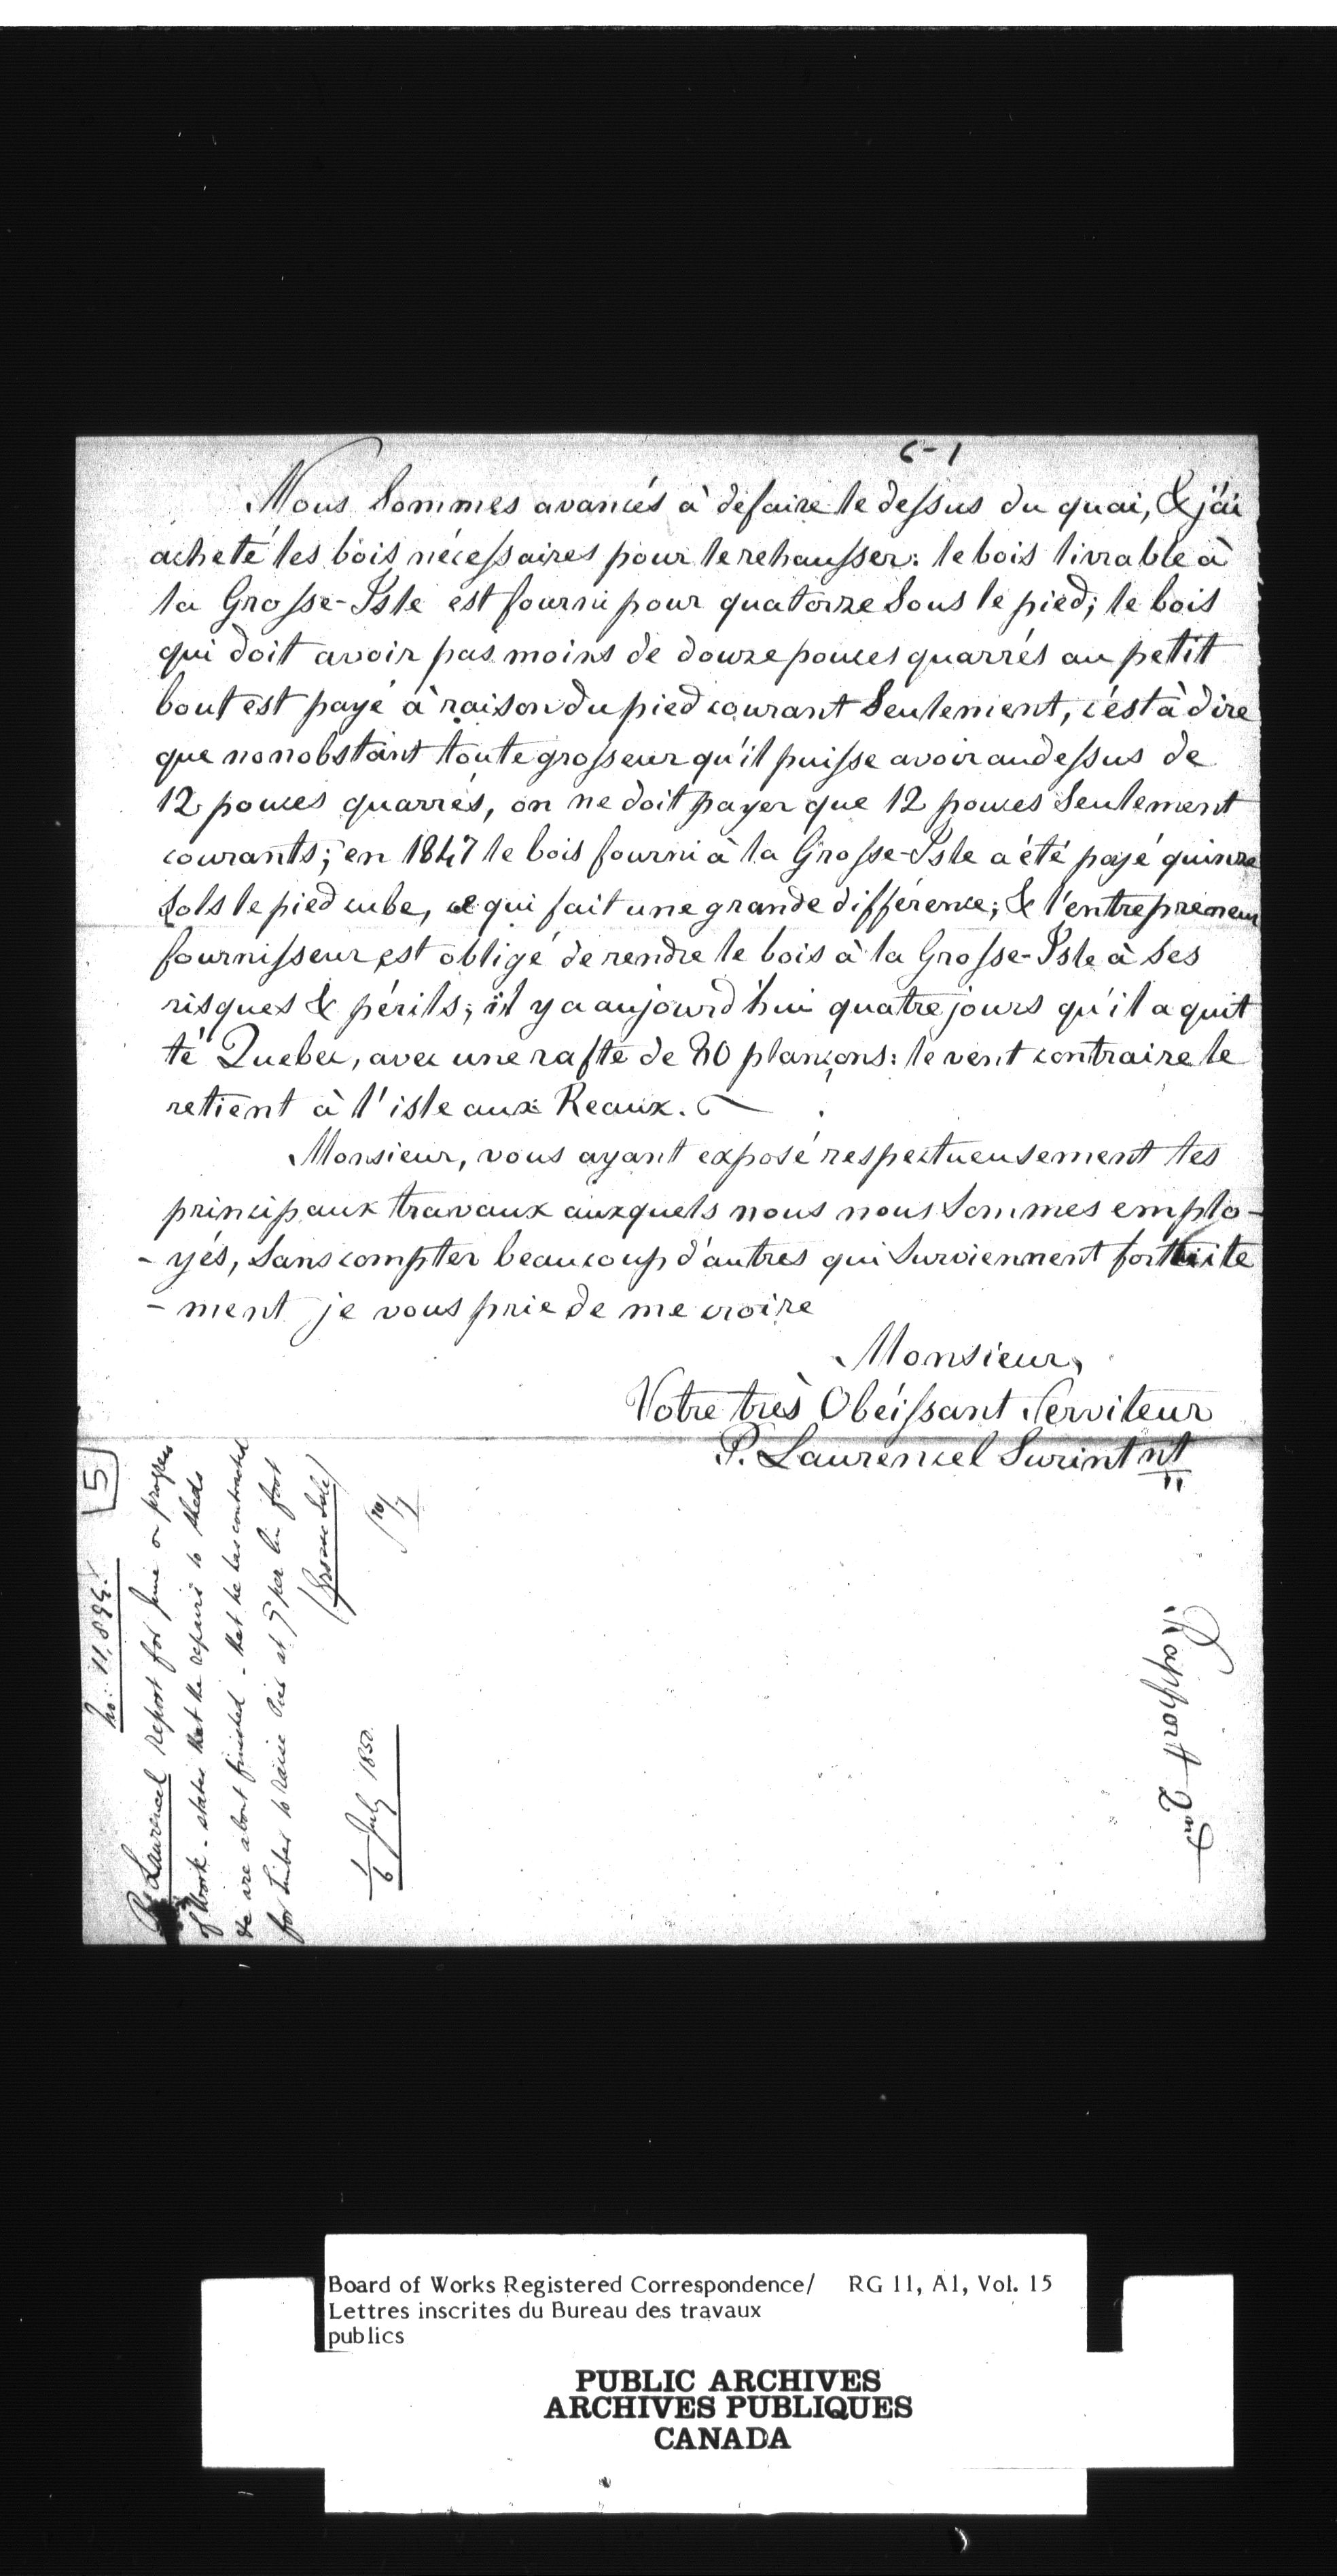 6-1
Nous Sommes avancés à defaire le dessus du quai, & j'ai
acheté les bois nécessaires pour le rehausser: le bois livrable à
la Grosse-Isle est fourni pour quatorze Sous le pied; le bois
qui doit avoir pas moins de douze pouces quarrés au petit
bout est payé à raison du pied courant Seulement, c'est à dire
que nonobstant toute grosseur qu'il puisse avoir au dessus de
12 pouces quarrés, on ne doit payer que 12 pouces Seulement
courants; en 1847 le bois fourni à la Grosse-Isle a été payé quinze
Sols le pied cube, ce qui fait une grande différence; & l'entrepreneur
fournisseur est obligé de rendre le bois à la Grosse-Isle à Ses
risques & périls; il y a aujourd'hui quatre jours qu'il a quit
té Quebec, avec une rafte de 80 plançons: le vent contraire le
retient à l'isle aux Reaux.
Monsieur, vous ayant exposé respectueusement les
principaux travaux auxquels nous nous Sommes emplo-
-yés, Sans compter beaucoup d'autres qui Surviennent fortuite
-ment je vous prie de me croire
Monsieur,
Votre très Obéissant Serviteur
P. Laurencel Surintnt
5
No: 11,899.
P. Laurencel Report for June on progress
of Work - states that the repairs to sheds
&c are about finished - that he has contracted
for timber to raise Pier at 7 per lin foot
(Grosse Isle)
1/6 July 1850
Rapport 2nd
Board of Works Registered Correspondence/ RG 11, A1, Vol. 15
Lettres inscrites du Bureau des travaux
publics
PUBLIC ARCHIVES
ARCHIVES PUBLIQUES
CANADA